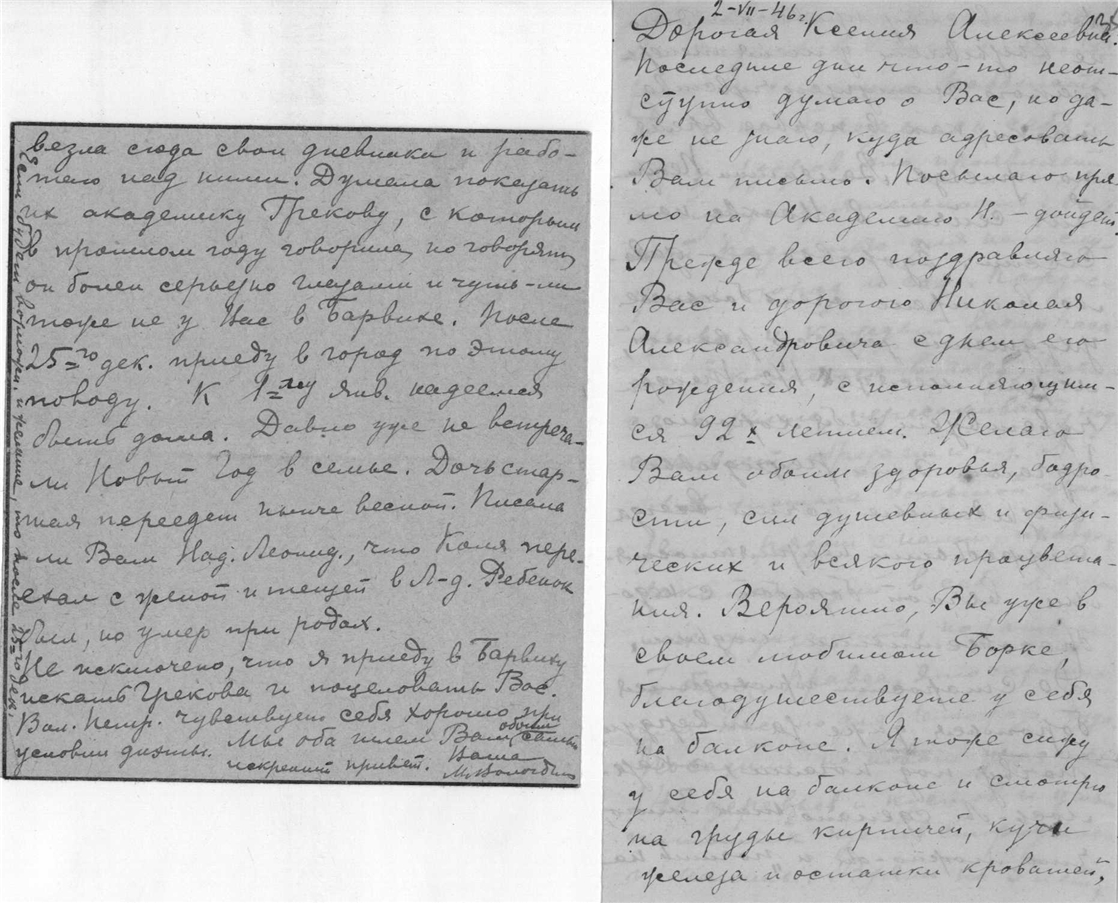 везла сюда свои дневники и рабо-
таю над ними. Думала показать
их академику Грекову, с которым
в прошлом году говорила, но говорят,
он болен серьезно глазами и чуть-ли
тоже не у Вас в Барвихе. После
25=го дек. приеду в город по этому
поводу. К 1=му янв. надеемся
быть дома. Давно уже не встреча-
ли Новый Год в семье. Дочь стар-
шая переедет нынче весной. Писала
ли Вам Над. Леонид., что Коля пере-
ехал с женой и тещей в Л-д. Ребенок
был, но умер при родах.
Не исключено, что я приеду в Барвиху
искать Грекова и поцеловать Вас.
Вал. Петр. чувствует себя хорошо при
условии диэты. Мы оба шлем Вам обоим самый
искренний привет. Ваша
М. Вологдина
Если будет и желание, то после 25=го дек.
2-VII-46г.
Дорогая Ксения Алексеевна.
Последние дни что-то неот-
ступно думаю о Вас, но да-
же не знаю, куда адресовать
Вам письмо. Посылаю пря-
мо на Академию Н. - дойдет.
Прежде всего поздравляю
Вас и дорогого Николая
Александровича с днем его
рождения, с исполняющим-
ся 92х летием. Желаю
Вам обоим здоровья, бодро-
сти, сил душевных и физи-
ческих и всякого процвета-
ния. Вероятно, Вы уже в
своем любимом Борке,
благодушествуете у себя
на балконе. Я тоже сижу
у себя на балконе и смотрю
на груды кирпичей, кучи
железа и остатки кроватей,